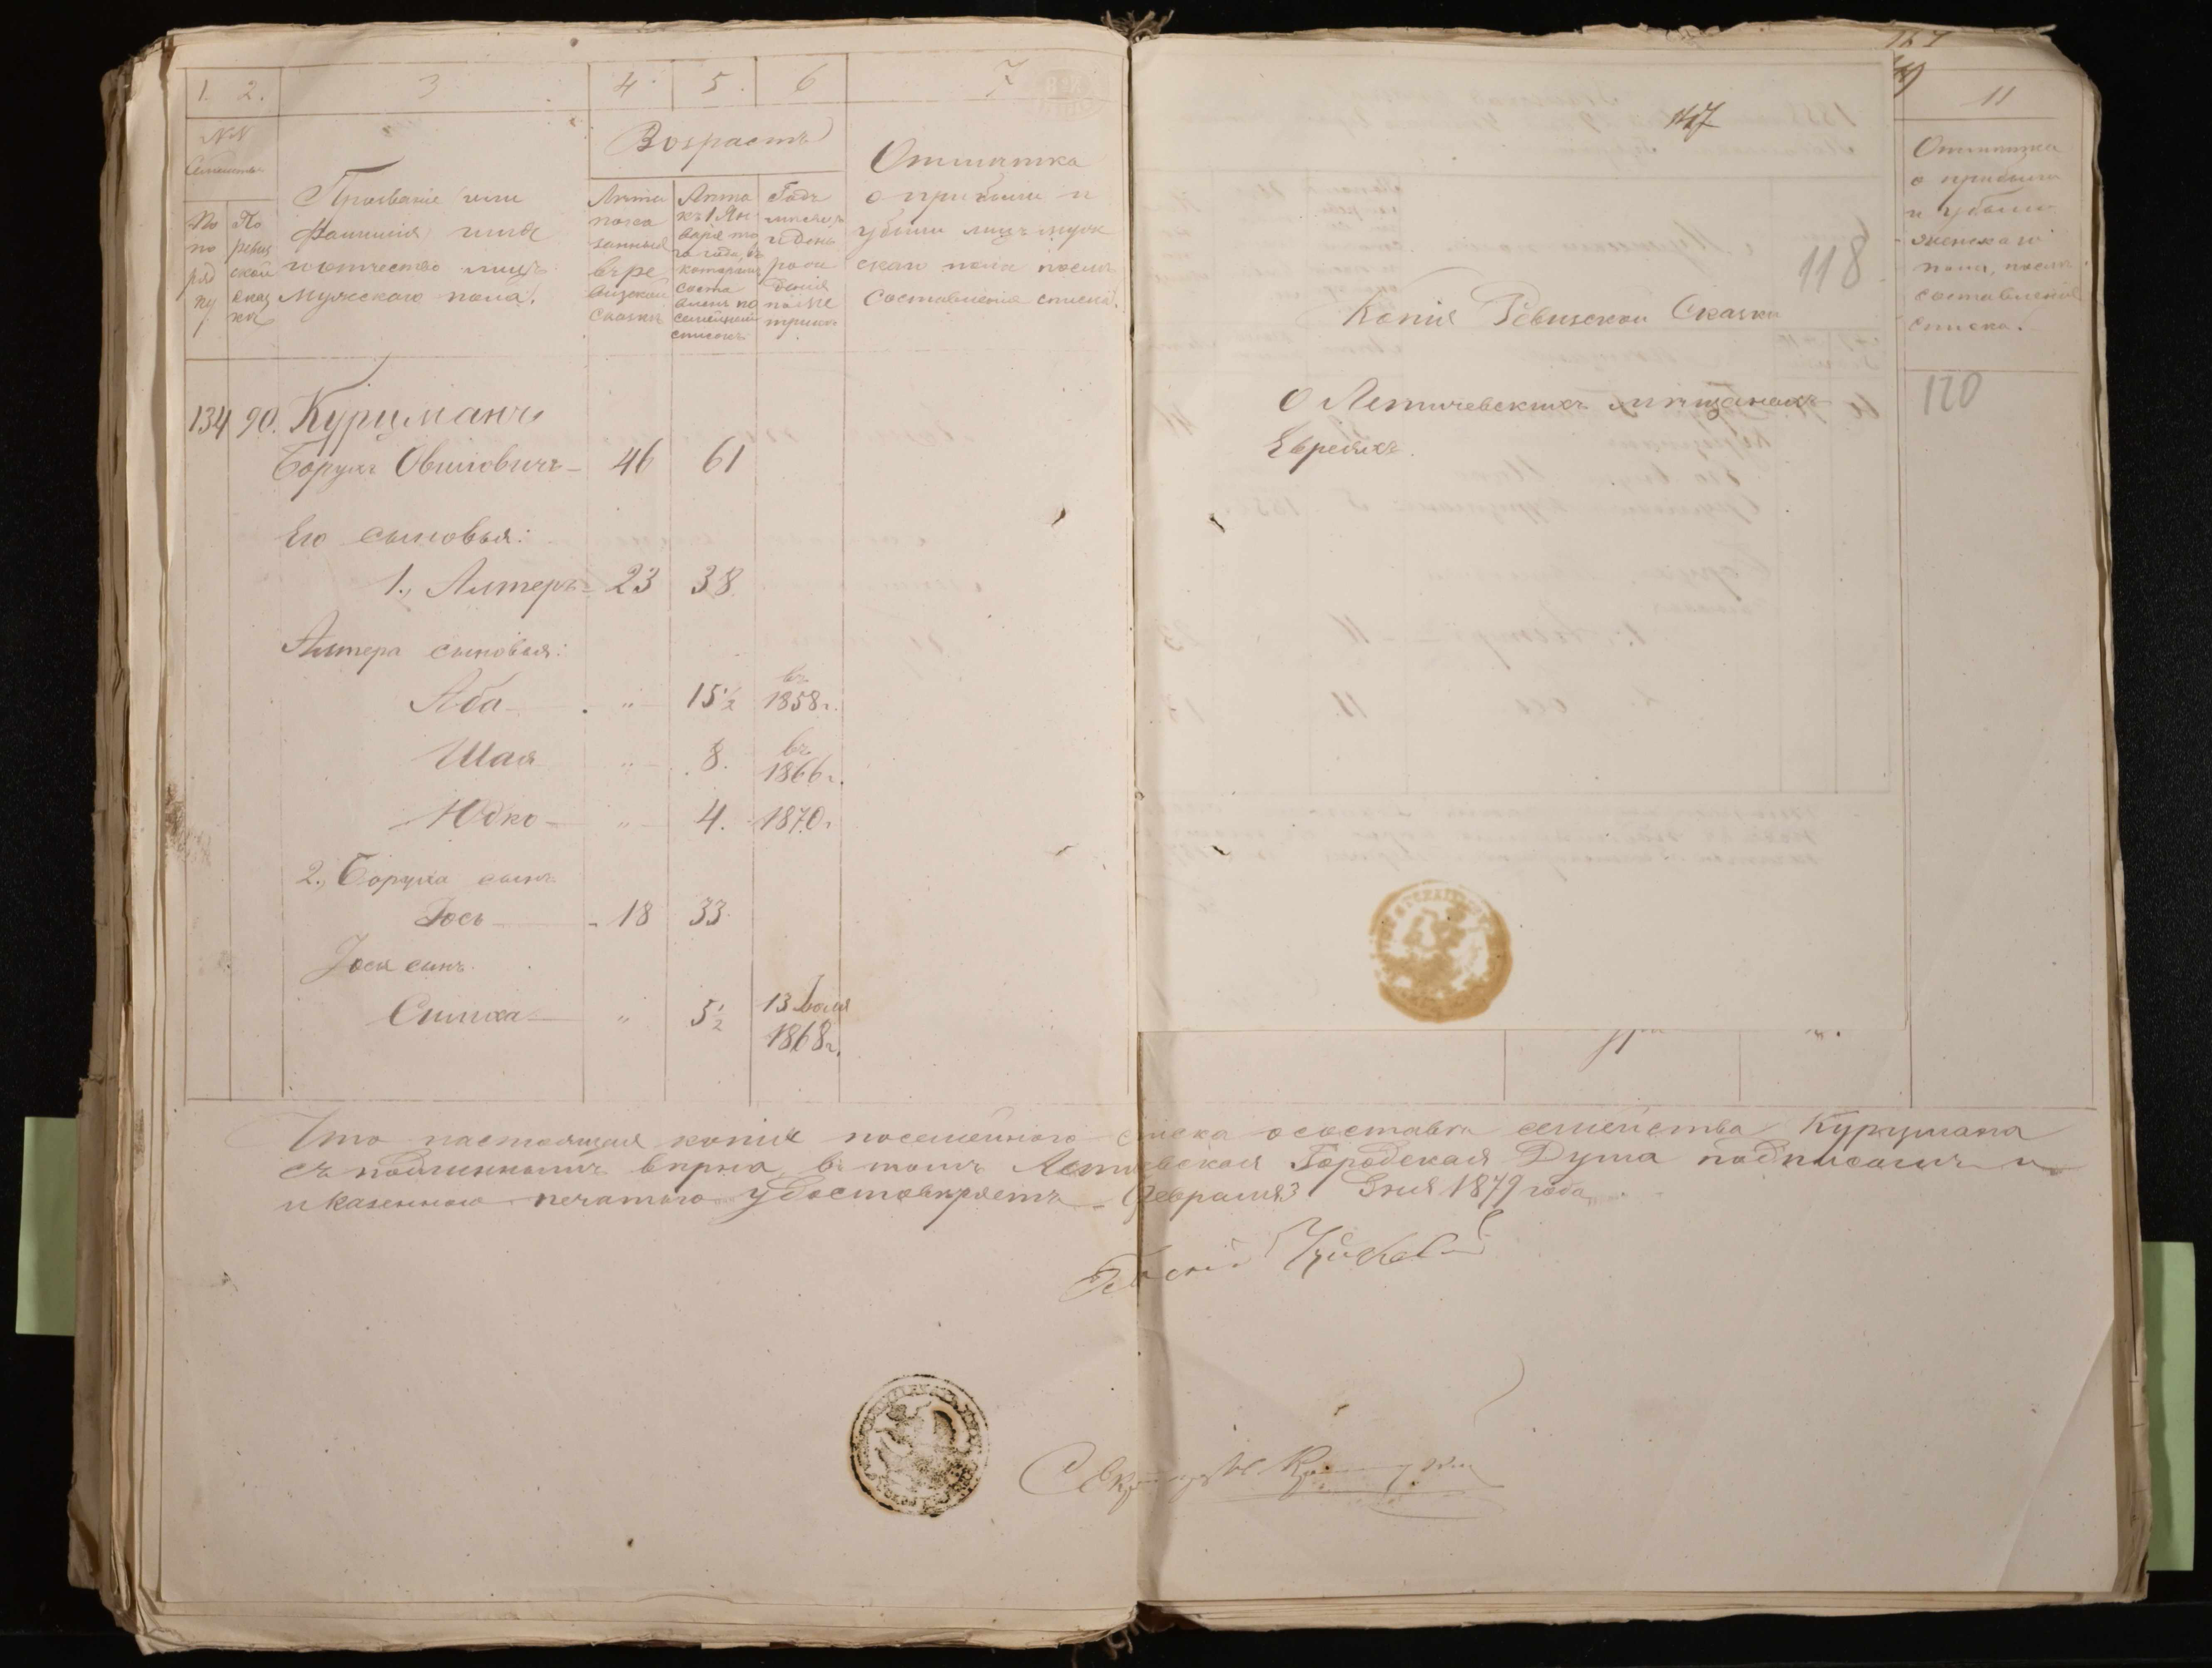 1. 2. 3 4. 5. 6 7
NN
Семействъ
По
по
ряд
ку
По
ревиз
ской
сказ
кѣ
Прозваніе или
фамилія имя
и отчество лицъ
мужскаго пола.
Возрастъ
Лѣта
пока
занныя
въ ре
визской
сказкѣ
Лѣта
къ 1 Ян
варя то
го года, въ
которомъ
соста
вленъ по
семейный
списокъ
Годъ
мѣсяцъ
и день
рож
денія
по ме
трикѣ
Отмѣтка
о прибыли и
убыли лицъ муж
скаго пола послѣ
составленія списка.
134 90. Курцманъ
Борухъ Овшіовичъ 46 61
Его сыновья:
1., Алтеръ 23 38
Алтера сыновья:
Аба " 15½ въ 1858 г.
Шая " 8. въ 1866 г.
Юдко " 4. 1870 г.
2., Боруха сынъ
Іось 18 33.
Іося сынъ
Симха " 5½ 13 Іюля
1868 г.
147
118
Копія Ревизской Сказки
О Летичевскихъ мѣщанахъ
Евреяхъ.
11
Отмѣтка
о прибыли
и убыли
женскаго
пола, послѣ
составленія
списка.
120
Что настоящая копія посемейнаго списка о составѣ семейства Курцмана
съ подлиннымъ вѣрна, въ томъ Летичевская Городская Дума подписомъ и
и казенною печатью удостовѣряетъ. Февраля 3 дня 1879 года